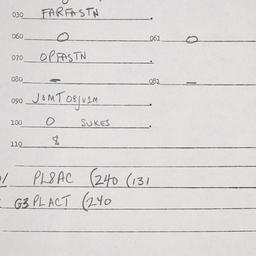 030 FARFASTN .
060 0 061 0
070 OPFASTN .
080 - 081 -
090 J8MT08JV1M
100 0 SUKES .
110 8
PL8AC (240 (131
G3 PLACT (240